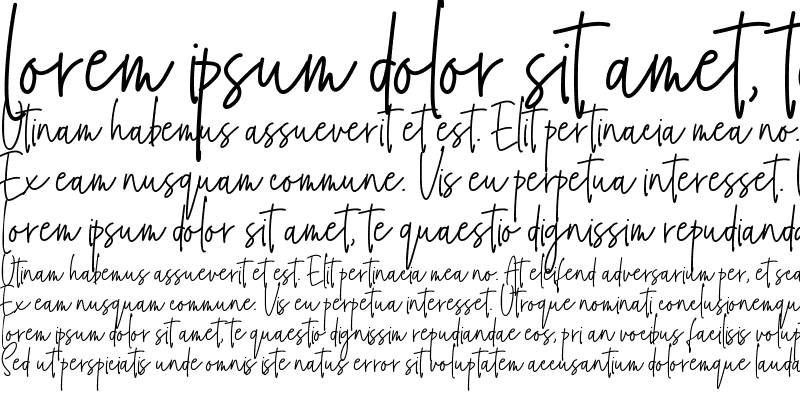 Lorem ipsum dolor sit amet, te
Utinam habemus assueverit et est. Elit pertinacia mea no.
Ex eam nusquam commune. Vis eu perpetua interesset.
Lorem ipsum dolor sit amet, te quaestio dignissim repudianda
Utinam habemus assueverit et est. Elit pertinacia mea no. At eleifend adversarium per, et sea
Ex eam nusquam commune. Vis eu perpetua interesset. Utroque nominati conclusionemqu
Lorem ipsum dolor sit amet, te quaestio dignissim repudiandae eos, pri an vocibus facilisis volup
Sed ut perspiciatis unde omnis iste natus error sit voluptatem accusantium doloremque lauda